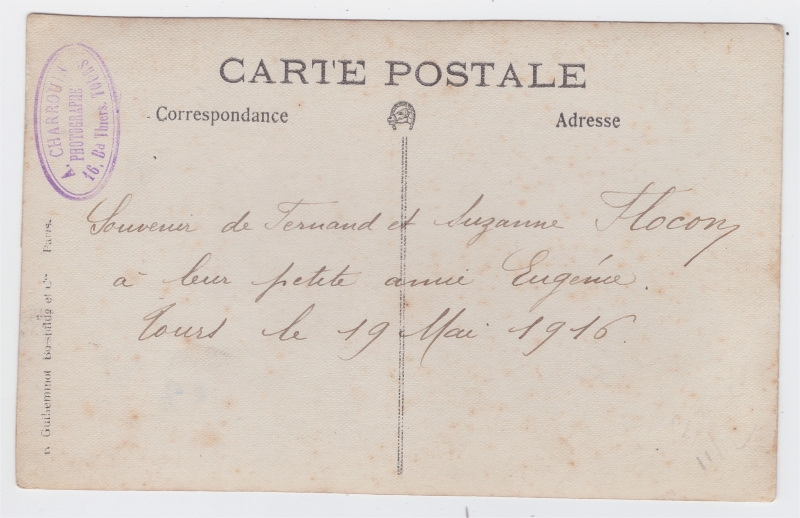 CARTE POSTALE
Correspondance
Adresse
A. CHARROUX
PHOTOGRAPHE
16, Bd Thiers. TOURS
Souvenir de Fernand et Suzanne Flocon
à leur petite amie Eugénie.
Tours le 19 Mai 1916.
R. Guilleminot Bœspflug et Cie Paris.